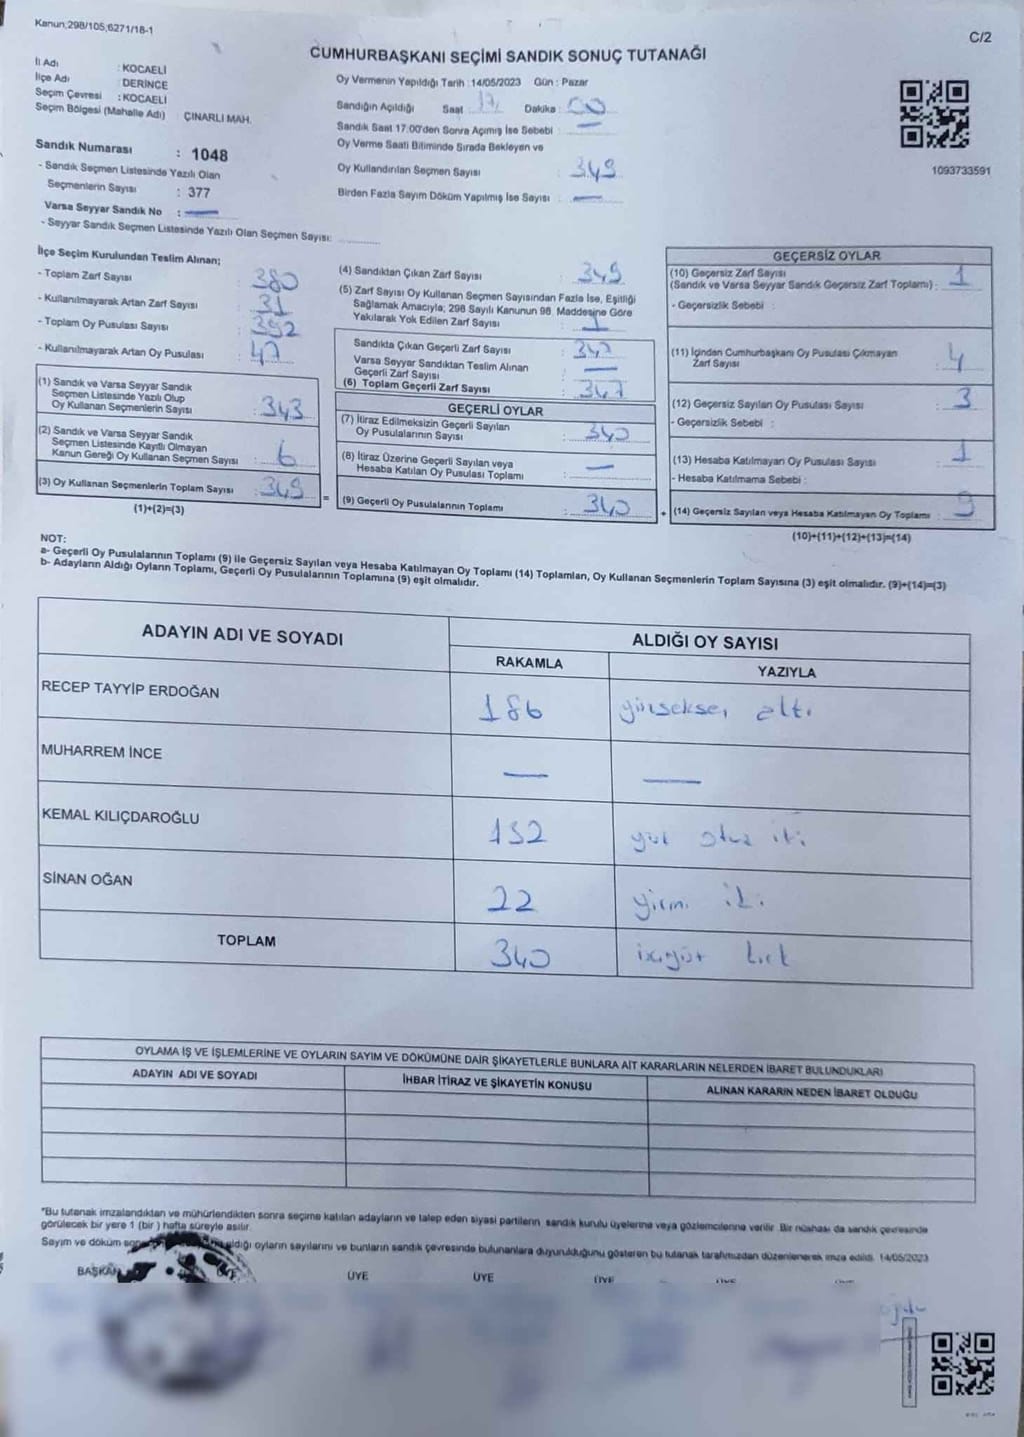 Kanun;298/105;6271/18-1
C/2
CUMHURBAŞKANI SEÇİMİ SANDIK SONUÇ TUTANAĞI
İl Adı : KOCAELİ
İlçe Adı : DERİNCE
Seçim Çevresi : KOCAELİ
Seçim Bölgesi (Mahalle Adı) : ÇINARLI MAH.
Sandık Numarası : 1048
- Sandık Seçmen Listesinde Yazılı Olan
Seçmenlerin Sayısı : 377
Varsa Seyyar Sandık No : —
- Seyyar Sandık Seçmen Listesinde Yazılı Olan Seçmen Sayısı:
Oy Vermenin Yapıldığı Tarih : 14/05/2023 Gün : Pazar
Sandığın Açıldığı Saat 17 Dakika : 00
Sandık Saat 17:00'den Sonra Açımış İse Sebebi : —
Oy Verme Saati Bitiminde Sırada Bekleyen ve
Oy Kullandırılan Seçmen Sayısı : 349
Birden Fazla Sayım Döküm Yapılmış İse Sayısı : —
1093733591
İlçe Seçim Kurulundan Teslim Alınan;
- Toplam Zarf Sayısı : 380
- Kullanılmayarak Artan Zarf Sayısı : 31
- Toplam Oy Pusulası Sayısı : 392
- Kullanılmayarak Artan Oy Pusulası : 47
(1) Sandık ve Varsa Seyyar Sandık
Seçmen Listesinde Yazılı Olup
Oy Kullanan Seçmenlerin Sayısı : 343
(2) Sandık ve Varsa Seyyar Sandık
Seçmen Listesinde Kayıtlı Olmayan
Kanun Gereği Oy Kullanan Seçmen Sayısı : 6
(3) Oy Kullanan Seçmenlerin Toplam Sayısı : 349
(1)+(2)=(3)
(4) Sandıktan Çıkan Zarf Sayısı : 349
(5) Zarf Sayısı Oy Kullanan Seçmen Sayısından Fazla İse, Eşitliği
Sağlamak Amacıyla; 298 Sayılı Kanunun 98. Maddesine Göre
Yakılarak Yok Edilen Zarf Sayısı : 1
Sandıkta Çıkan Geçerli Zarf Sayısı : 347
Varsa Seyyar Sandıktan Teslim Alınan
Geçerli Zarf Sayısı : —
(6) Toplam Geçerli Zarf Sayısı : 347
GEÇERLİ OYLAR
(7) İtiraz Edilmeksizin Geçerli Sayılan
Oy Pusulalarının Sayısı : 340
(8) İtiraz Üzerine Geçerli Sayılan veya
Hesaba Katılan Oy Pusulası Toplamı : —
(9) Geçerli Oy Pusulalarının Toplamı : 340
= +
GEÇERSİZ OYLAR
(10) Geçersiz Zarf Sayısı
(Sandık ve Varsa Seyyar Sandık Geçersiz Zarf Toplamı) : 1
- Geçersizlik Sebebi :
(11) İçinden Cumhurbaşkanı Oy Pusulası Çıkmayan
Zarf Sayısı : 4
(12) Geçersiz Sayılan Oy Pusulası Sayısı : 3
- Geçersizlik Sebebi :
(13) Hesaba Katılmayan Oy Pusulası Sayısı : 1
- Hesaba Katılmama Sebebi :
(14) Geçersiz Sayılan veya Hesaba Katılmayan Oy Toplamı : 9
(10)+(11)+(12)+(13)=(14)
NOT:
a- Geçerli Oy Pusulalarının Toplamı (9) ile Geçersiz Sayılan veya Hesaba Katılmayan Oy Toplamı (14) Toplamları, Oy Kullanan Seçmenlerin Toplam Sayısına (3) eşit olmalıdır. (9)+(14)=(3)
b- Adayların Aldığı Oyların Toplamı, Geçerli Oy Pusulalarının Toplamına (9) eşit olmalıdır.
ADAYIN ADI VE SOYADI ALDIĞI OY SAYISI
RAKAMLA YAZIYLA
RECEP TAYYİP ERDOĞAN 186 yürseksen altı
MUHARREM İNCE — —
KEMAL KILIÇDAROĞLU 132 yüz otuz iki
SİNAN OĞAN 22 yirmi iki
TOPLAM 340 kırk
OYLAMA İŞ VE İŞLEMLERİNE VE OYLARIN SAYIM VE DÖKÜMÜNE DAİR ŞİKAYETLERLE BUNLARA AİT KARARLARIN NELERDEN İBARET BULUNDUKLARI
ADAYIN ADI VE SOYADI İHBAR İTİRAZ VE ŞİKAYETİN KONUSU ALINAN KARARIN NEDEN İBARET OLDUĞU
*Bu tutanak imzalandıktan ve mühürlendikten sonra seçime katılan adayların ve talep eden siyasi partilerin sandık kurulu üyelerine veya gözlemcilerine verilir. Bir nüshası da sandık çevresinde
görülecek bir yere 1 (bir) hafta süreyle asılır.
Sayım ve döküm aldığı oyların sayılarını ve bunların sandık çevresinde bulunanlara duyurulduğunu gösteren bu tutanak tarafımızdan düzenlenerek imza edildi. 14/05/2023
BAŞKAN ÜYE ÜYE ÜYE ÜYE